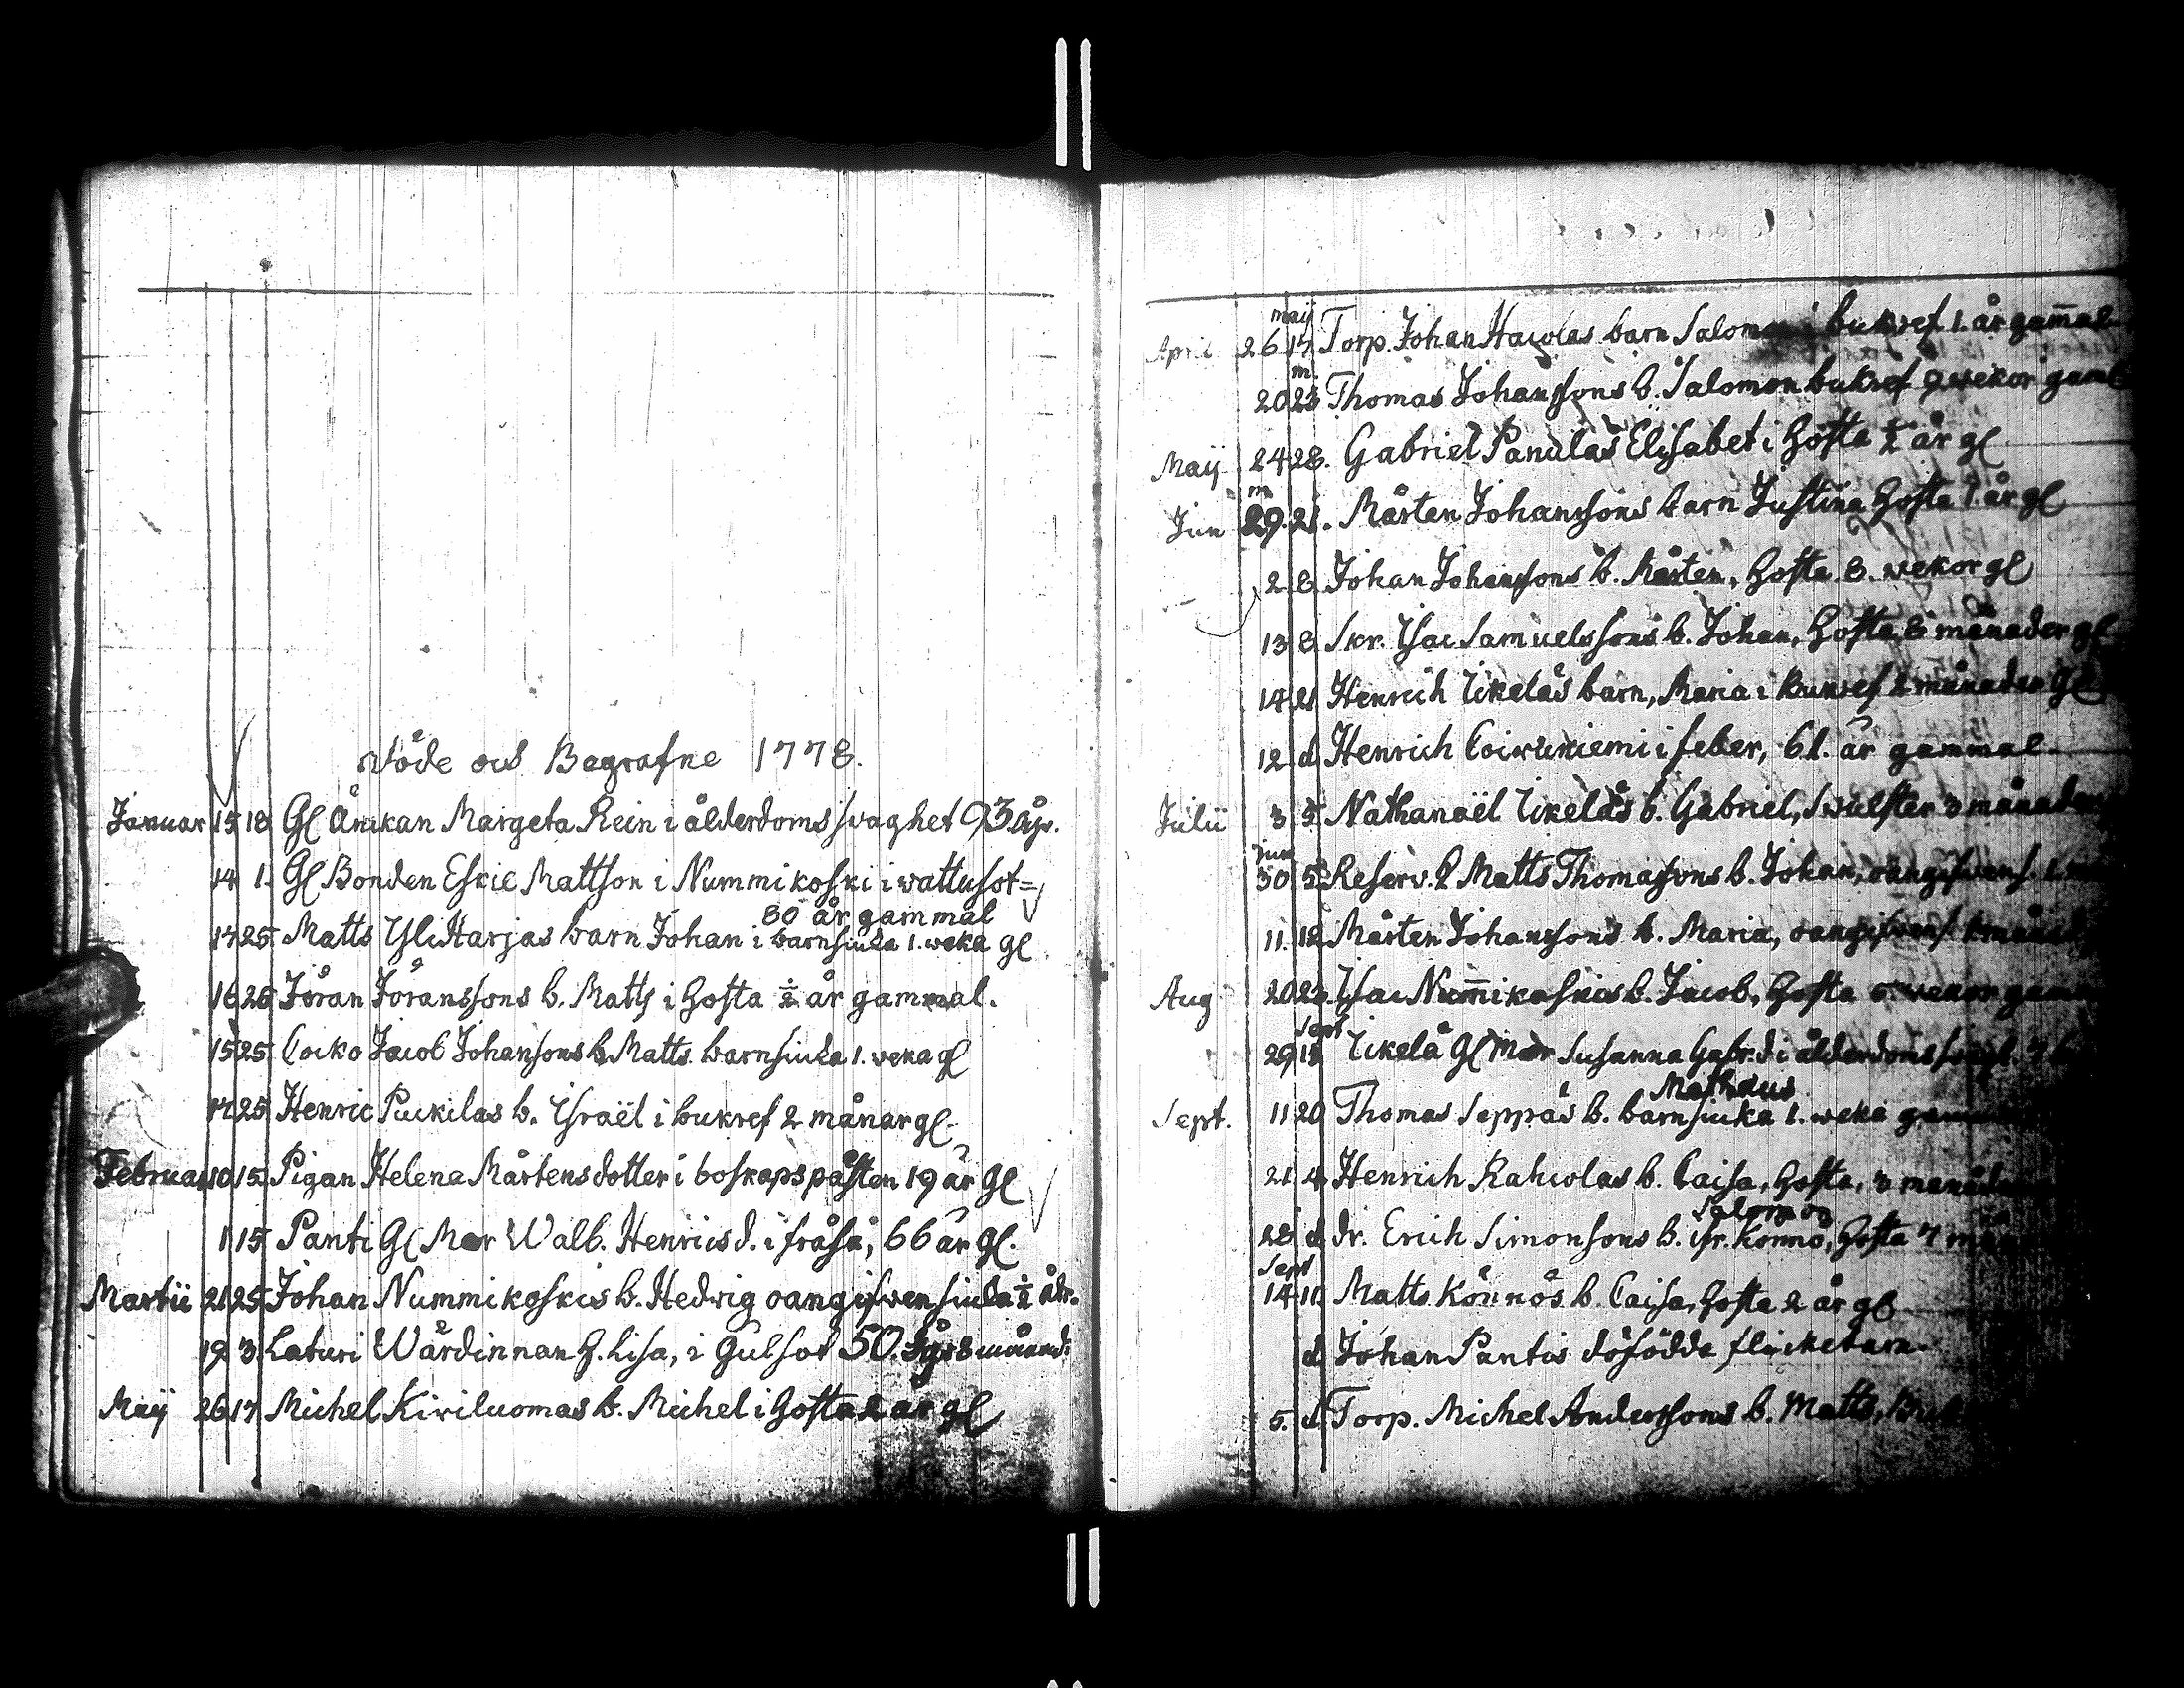 Döde och Begrafne 1778.
Januar 15 18 Gl Änkan Margeta Rein i ålderdoms svaghet 93 åg.
14 1. Gl Bonden Eskie Mattson i Nummikoski i vattusot=
80 år gammal
17 25 Matts YliHarjas barn Johan i barnsiuka 1. weka gl
16 25 Jöran Jöranssons b. Matts i Hosta ½ år gammal.
15 25 Cocko Jacob Johansons b. Matts barnsiuka 1. veka gl
17 25 Henric Puckilas b. Israël i bukref 2 månar gl
Februar 10 15. Pigan Helena Mårtensdotter i boskapspåsten 19 år gl
1 15 Panti Gl Mor Walb. Henricsd. i fråsa, 66 år gl.
Martii 21 25 Johan Nummikoskis b. Hedvig oangifwen siuka ½ år.
19 3. Laturi Wärdinnan H. Lisa, i Gulsot 50. 8 månad:
Maij 26 17 Michel Kiviluomas b. Michel i Hosta 2 år gl
maij
April 26 17 Torp. Johan Hawlas barn Salomon i bukref 1. år gammal
m.
20 23 Thomas Johanssons b. Salomon bukref 9 wekor gamal
Maij 24 28. Gabriel Panulas Elisabet i Hosta ½ år gl
m
Jun 29. 21. Mårten Johanssons barn Justina Hosta 1. år gl
2 8 Johan Johanssons b. Mårten, Hosta 8. wekor gl
13 8 Skr. Isac Samuelssons b. Johan, Hosta 8 månader gl
14 21 Henrich Ickeläs barn, Maria i Bukref 2 månader gl
12 d Henrich Coivuniemi i feber, 61. år gammal
Julii 3 5 Nathanaël Ickeläs b. Gabriel, Swulster 3 månader
jun
30 5 Reserv. Matts Thomassons b. Johan, oangifwen s. 1.
11. 12 Mårten Johanssons b. Maria, oangifwen s.
Aug 20 23. Isac Nummikoskis b. Jacob, Hosta wekor
Sept
29 13 Ickelä Gl Mor Susanna Gabr.d. i ålderdoms
Matheus
Sept. 11 20 Thomas Seppäs b. barnsiuka 1. weka
21. 4. Henrich Rahcolas b. Caisa, Hosta, 3 månader
Salomon
28 d dr. Erich Simonsons b. Könnö, Hosta 7
Sept
14 11 Matts Könnös b. Caisa, Hosta 2 år gl
d Johan Pantis döfödda flickebarn.
5. d Torp. Michel Anderssons b. Matts,